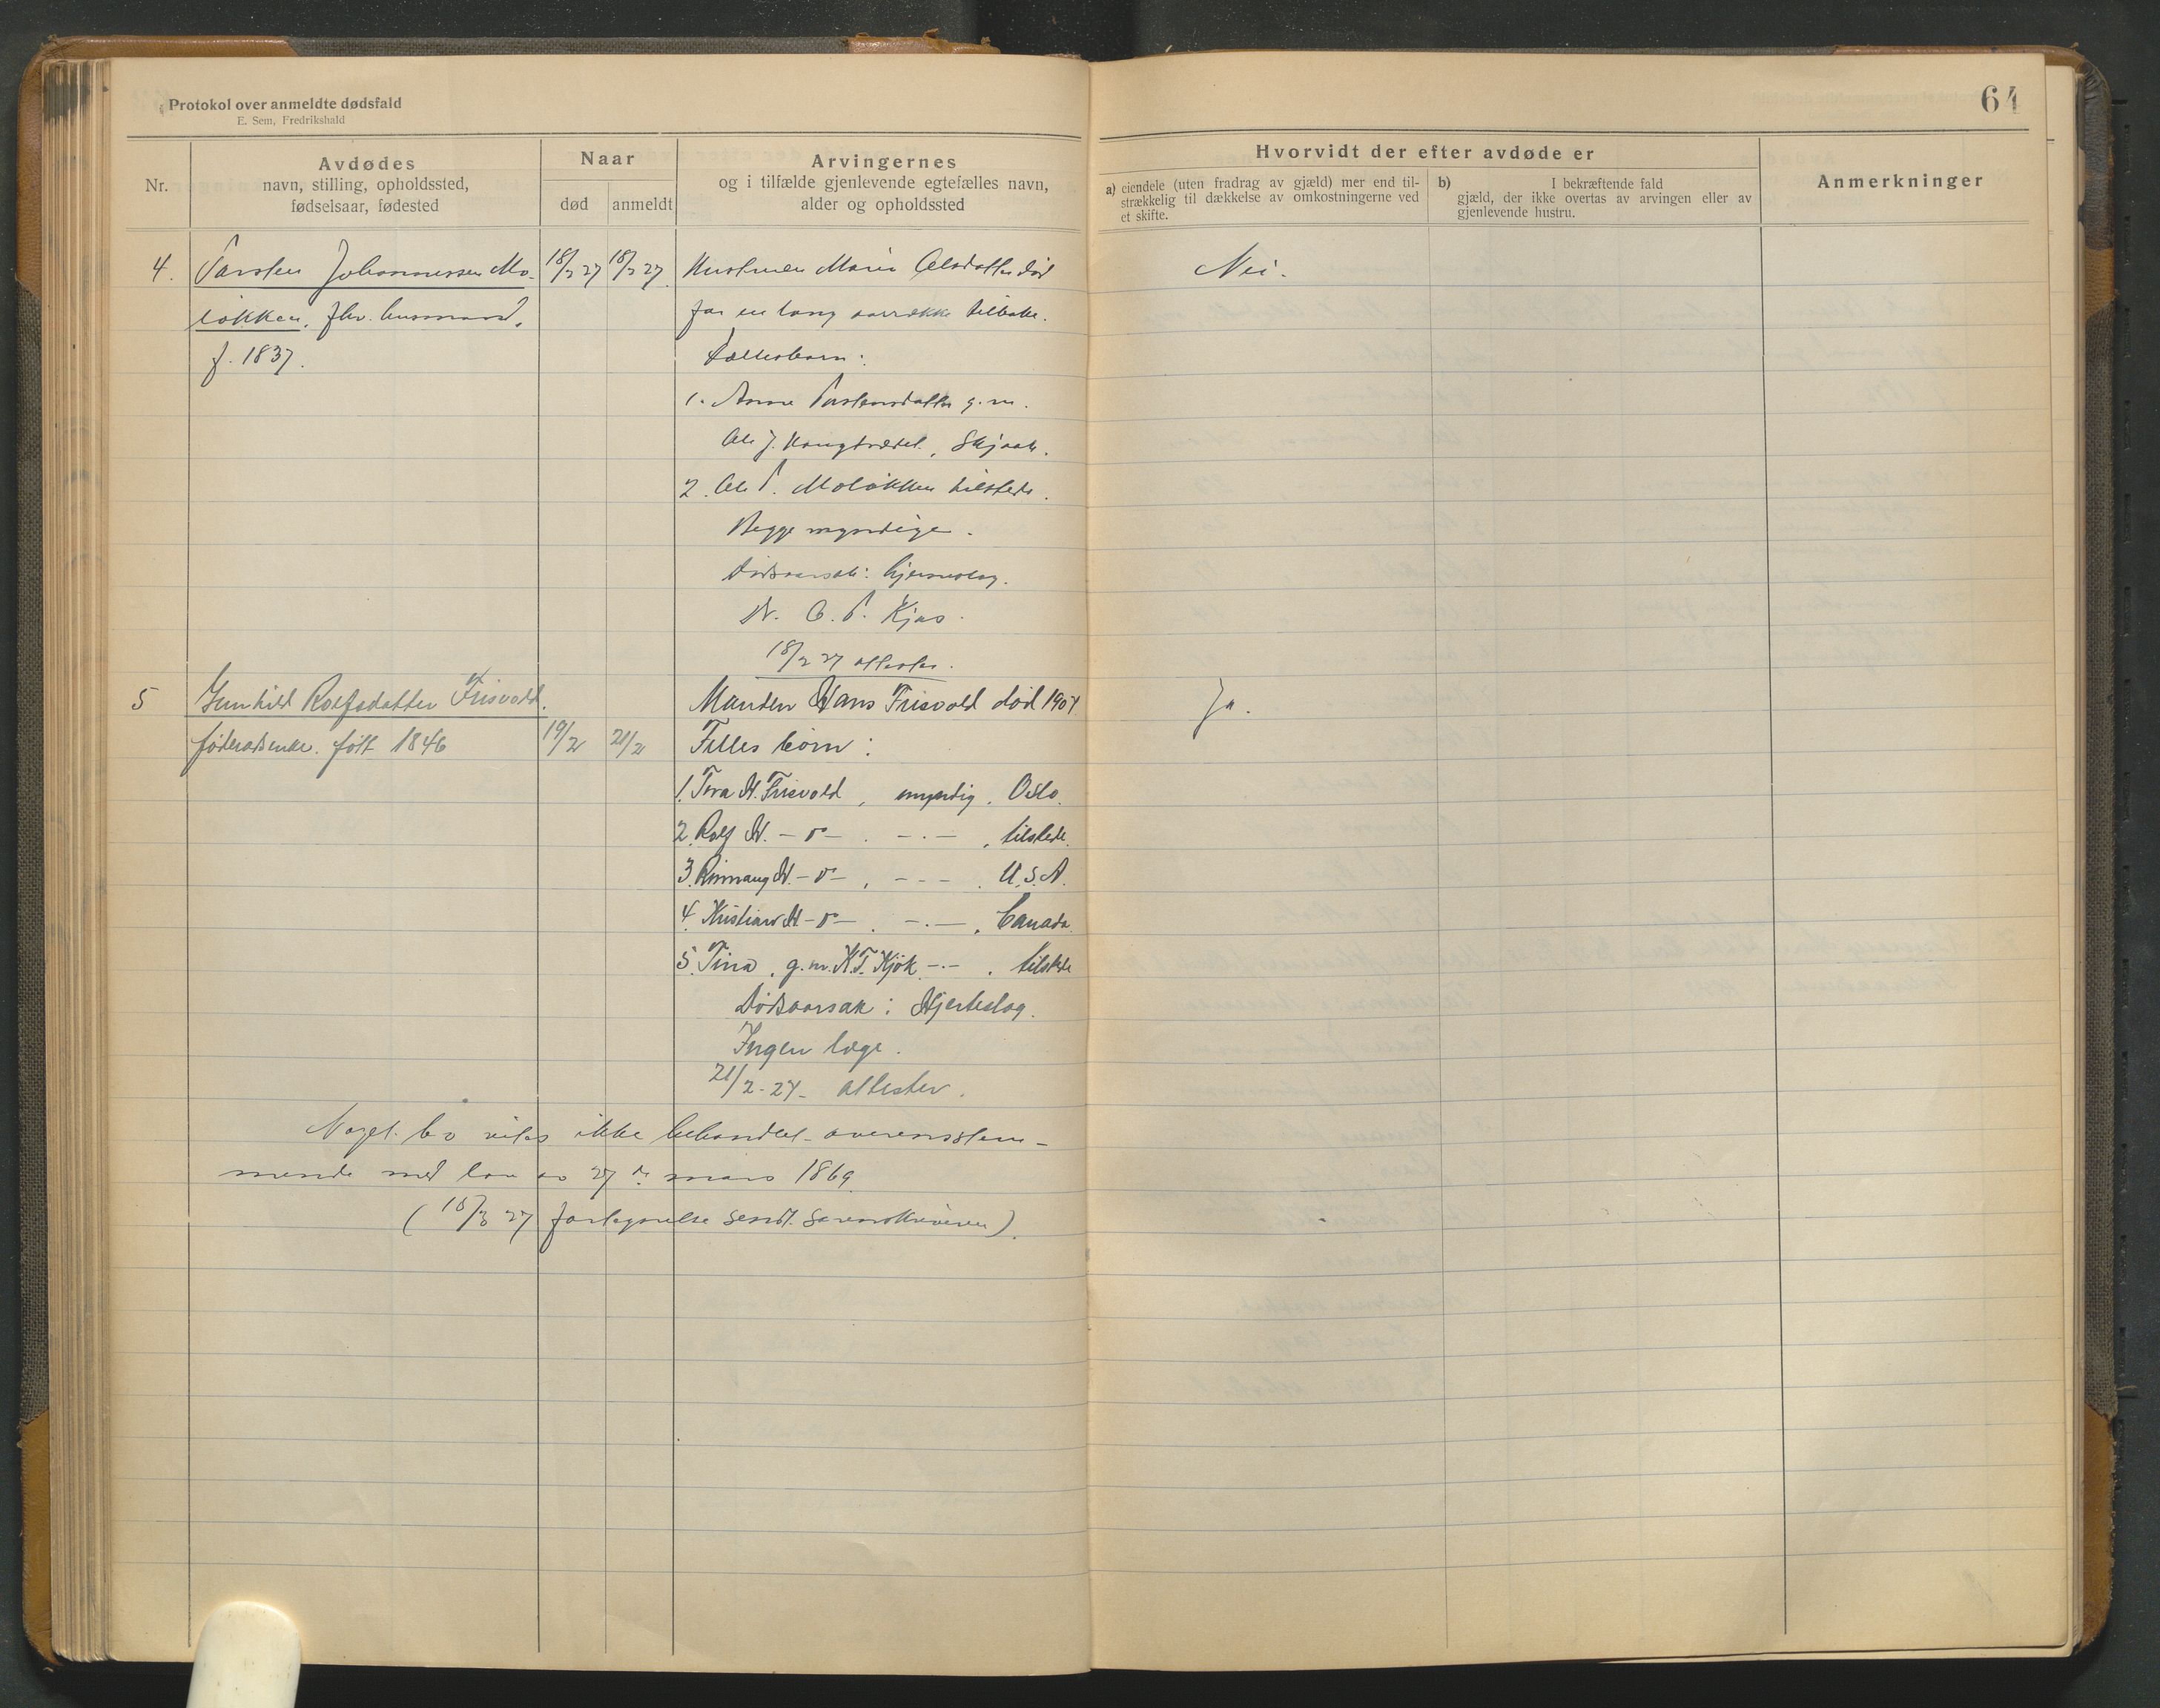 Protokol over anmeldte dødsfald
E. Sem, Fredrikshald
64
Nr.
Avdødes
navn, stilling, opholdssted,
fødselsaar, fødested
Naar
død
anmeldt
Arvingernes
og i tilfælde gjenlevende egtefælles navn,
alder og opholdssted
Hvorvidt der efter avdøde er
a) eiendele (uten fradrag av gjæld) mer end til-
strækkelig til dækkelse av omkostningerne ved
et skifte.
b) I bekræftende fald
gjæld, der ikke overtas av arvingen eller av
gjenlevende hustru.
Anmerkninger
4. Torsten Johannessen Mo- 18/2 27 18/2 27. Hustruen Marie Olsdatter død Nei.
løkken, fhv. husmand, for en lang aarrække tilbake.
f. 1837. Fællesbarn:
1. Anne Torstensdatter g. m.
Ole J. Haugtrædet, Skjaak.
2. Ole T. Moløkken tilstede.
Begge myndige.
Dødsaarsak: hjerneslag.
Dr. O. T. Kjos.
18/2 27 attester.
5 Gunhild Rolfsdatter Frisvold. Manden Hans Frisvold død 1904 Ja.
føderadsenke. født 1846 19/2 21/2 Felles børn:
1. Tora H. Frisvold, myndig, Oslo.
2. Rolf H. - " - . - . - , tilstede.
3. Rønnaug H. - " - , - - - . U.S.A.
4. Kristian H - " - . - . - , Canada.
5. Tina, g. m. K. T. Kjøk - . - . tilstede
Dødsaarsak: Hjerteslag.
Ingen læge.
21/2 - 27 - attester.
Noget bo vites ikke behandlet overensstem-
mende med lov av 27de mars 1869.
(18/3 27 fortegnelse sendt sorenskriveren).